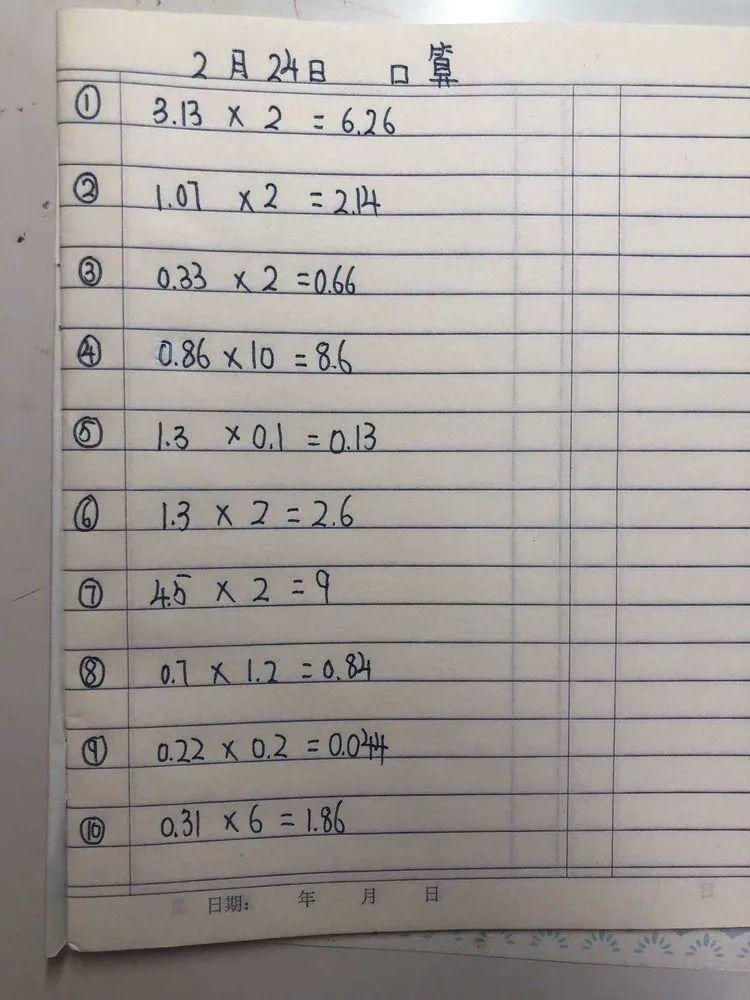 2月24日 口算
① 3.13 × 2 = 6.26
② 1.07 × 2 = 2.14
③ 0.33 × 2 = 0.66
④ 0.86 × 10 = 8.6
⑤ 1.3 × 0.1 = 0.13
⑥ 1.3 × 2 = 2.6
⑦ 4.5 × 2 = 9
⑧ 0.7 × 1.2 = 0.84
⑨ 0.22 × 0.2 = 0.044
⑩ 0.31 × 6 = 1.86
日期: 年 月 日